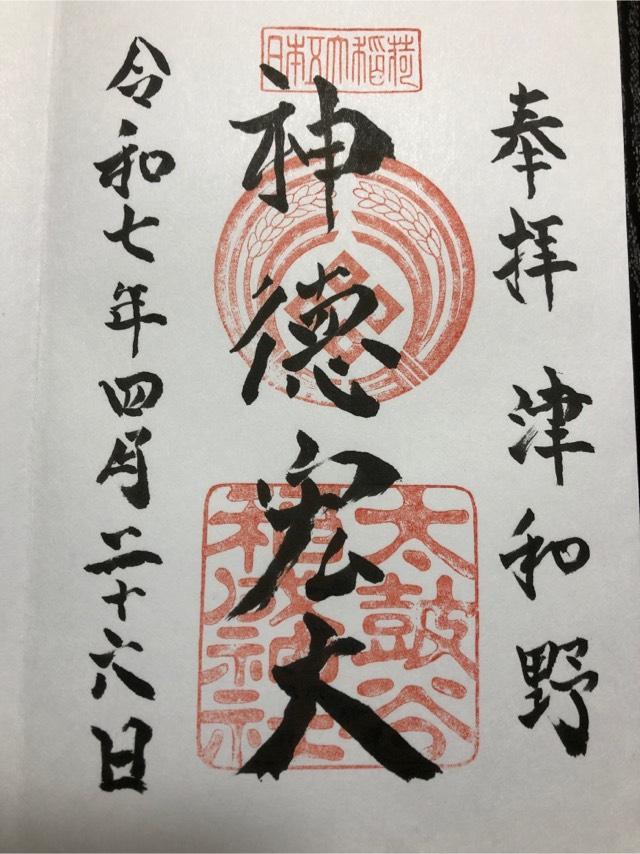 奉拝 津和野
日本五大稲荷
神徳宏大
太鼓谷
稲成神社
令和七年四月二十六日